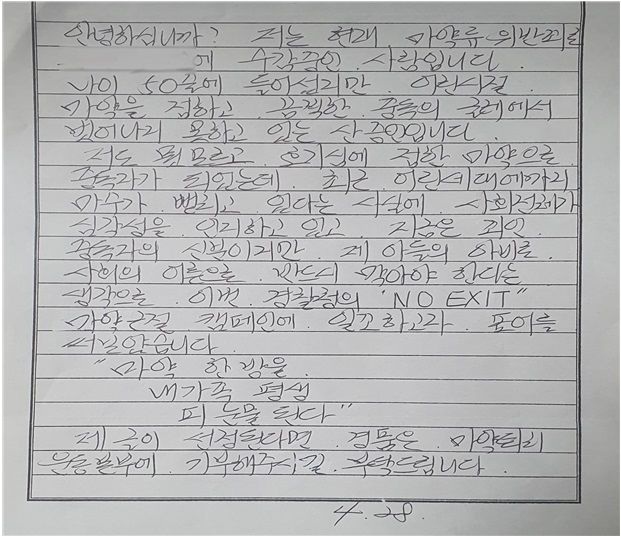 안녕하십니까? 저는 현재 마약류위반죄로
에 수감중인 사람입니다.
나이 50줄에 들어섰지만 어린시절
마약을 접하고 끔찍한 중독의 굴레에서
벗어나지 못하고 있는 사람입니다.
저도 뭘 모르고 호기심에 접한 마약으로
중독자가 되었는데 최근 어린세대에까지
마수가 뻗치고 있다는 사실에 사회전체가
심각성을 인지하고 있고 지금은 죄인
중독자의 신분이지만 제 아들의 아비로
사회의 어른으로 반드시 막아야 한다는
생각으로 이번 경찰청의 "NO EXIT"
마약근절 캠페인에 일조하고자 표어를
써보았습니다.
"마약 한방울
내가족 평생
피눈물 된다"
제 글이 선정된다면 경품은 마약퇴치
운동본부에 기부해주시길 부탁드립니다.
4.28.